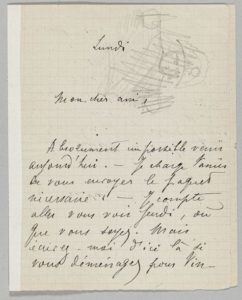 Lundi
Mon cher ami,
Absolument impossible venir
aujourd'hui. — Je charge Vanier
de vous envoyer le paquet
nécessaire. — Je compte
aller vous voir Jeudi, où
que vous soyez. Mais
écrivez-moi d'ici là si
vous déménagez pour Vin-